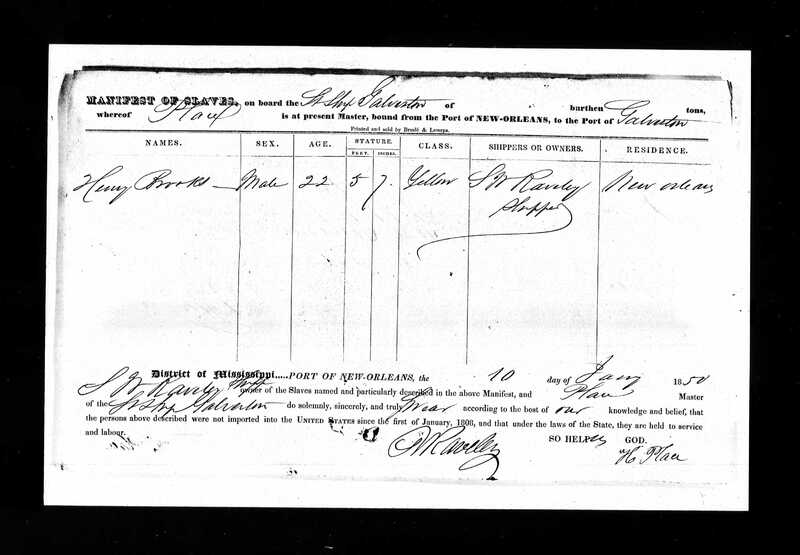 MANIFEST OF SLAVES, on board the St Ship Galveston of burthen tons,
whereof Place is at present Master, bound from the Port of NEW-ORLEANS, to the Port of Galveston
Printed and sold by Bruslé & Lesueur.
NAMES. SEX. AGE. STATURE. CLASS. SHIPPERS OR OWNERS. RESIDENCE.
FEET. INCHES.
Henry Brooks Male 22 5 7 Yellow S W Raveley New orleans
Shipper
District of Mississippi.....PORT OF NEW-ORLEANS, the 10 day of Jany 1850
S W Raveley owner of the Slaves named and particularly described in the above Manifest, and Place Master
of the St Ship Galveston do solemnly, sincerely, and truly Swear according to the best of our knowledge and belief, that
the persons above described were not imported into the UNITED STATES since the first of January, 1808, and that under the laws of the State, they are held to service
and labour. SO HELP us GOD.
Raveley
H Place